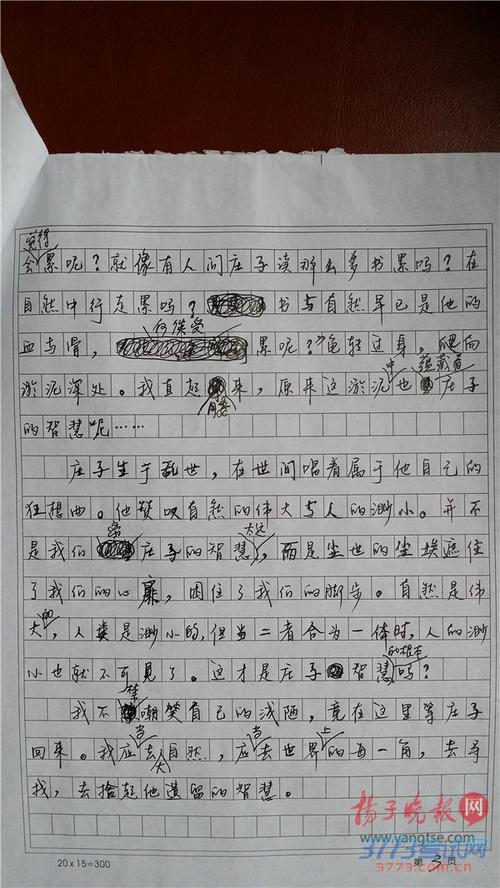 会觉得累呢？就像有人问庄子读那么多书累吗？在
自然中行走累吗？书与自然早已是他的
血与骨，何谈受累呢？"龟转过身，爬向
淤泥深处。我直起腰来，原来这淤泥中也蕴藏着庄子
的智慧呢……
庄子生于乱世，在世间唱着属于他自己的
狂想曲。他赞叹自然的伟大与人的渺小。并不
是我们离庄子的智慧太远，而是尘世的尘埃遮住
了我们的心扉，困住了我们的脚步。自然是伟
大的，人类是渺小的，但当二者合为一体时，人的渺
小也就不可见了。这才是庄子智慧的根本吗？
我不禁嘲笑自己的浅陋，竟在这里等庄子
回来。我应当去大自然，应当去世界上的每一角，去寻
找，去拾起他遗留的智慧。
20×15=300
第 3 页
扬子晚报网
www.yangtse.com
3773考试网
3773.com.cn